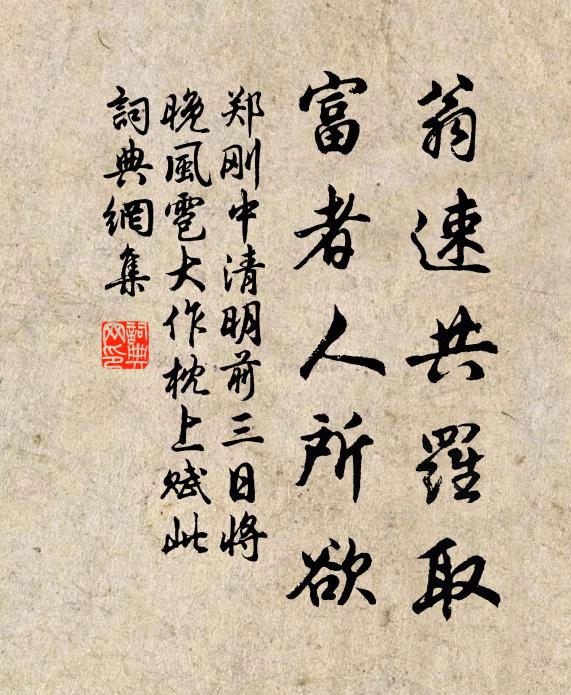 翁速共羅取
富者人所欲
郑刚中清明前三日将
晚風雹大作枕上赋此
詞典網集
詞典
网印